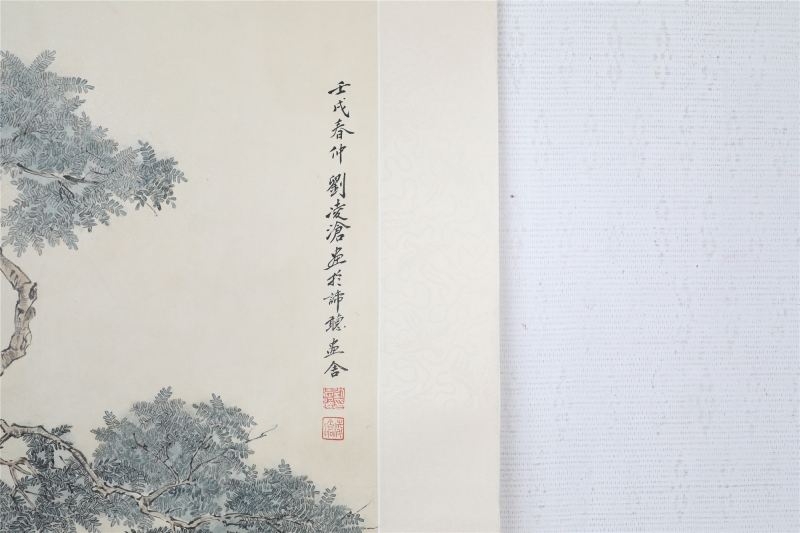 壬戌春仲劉凌滄畫於諦聽畫舍